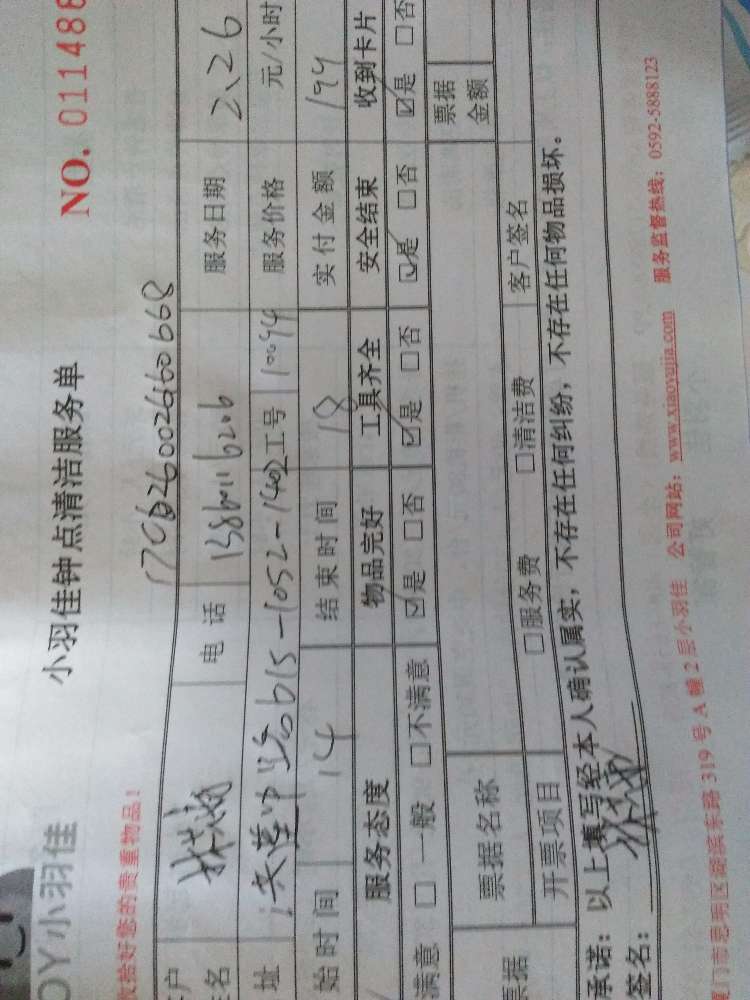 OY小羽佳
小羽佳钟点清洁服务单
NO. 011488
收拾好您的贵重物品！
电 话
服务日期 2、26
址
工号
服务价格 元/小时
始时间 14 结束时间 18 实付金额 199
服务态度 物品完好 工具齐全 安全结束 收到卡片
满意 □一般 □不满意 ☑是 □否 ☑是 □否 ☑是 □否 ☑是 □否
票据名称 票据金额
票据 开票项目 □服务费 □清洁费 客户签名
承诺：以上填写经本人确认属实，不存在任何纠纷，不存在任何物品损坏。
签名：
厦门市思明区湖滨东路 319 号 A 幢 2 层小羽佳 公司网站：www.xiaoyujia.com 服务监督热线：0592-5888123